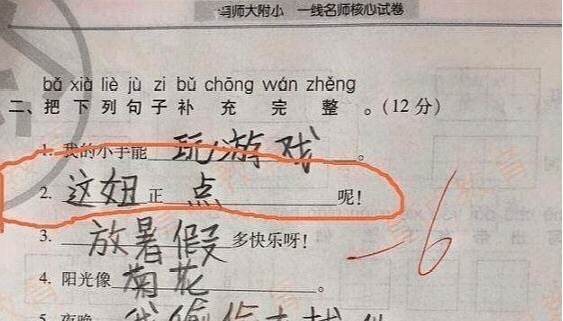 师大附小 一线名师核心试卷
bǎ xià liè jù zi bǔ chōng wán zhěng
二、把下列句子补充完整。(12分)
1. 我的小手能 玩游戏 。
2. 这妞正 点 呢!
-6
3. 放暑假多快乐呀!
4. 阳光像 菊花 。
5. 夜晚